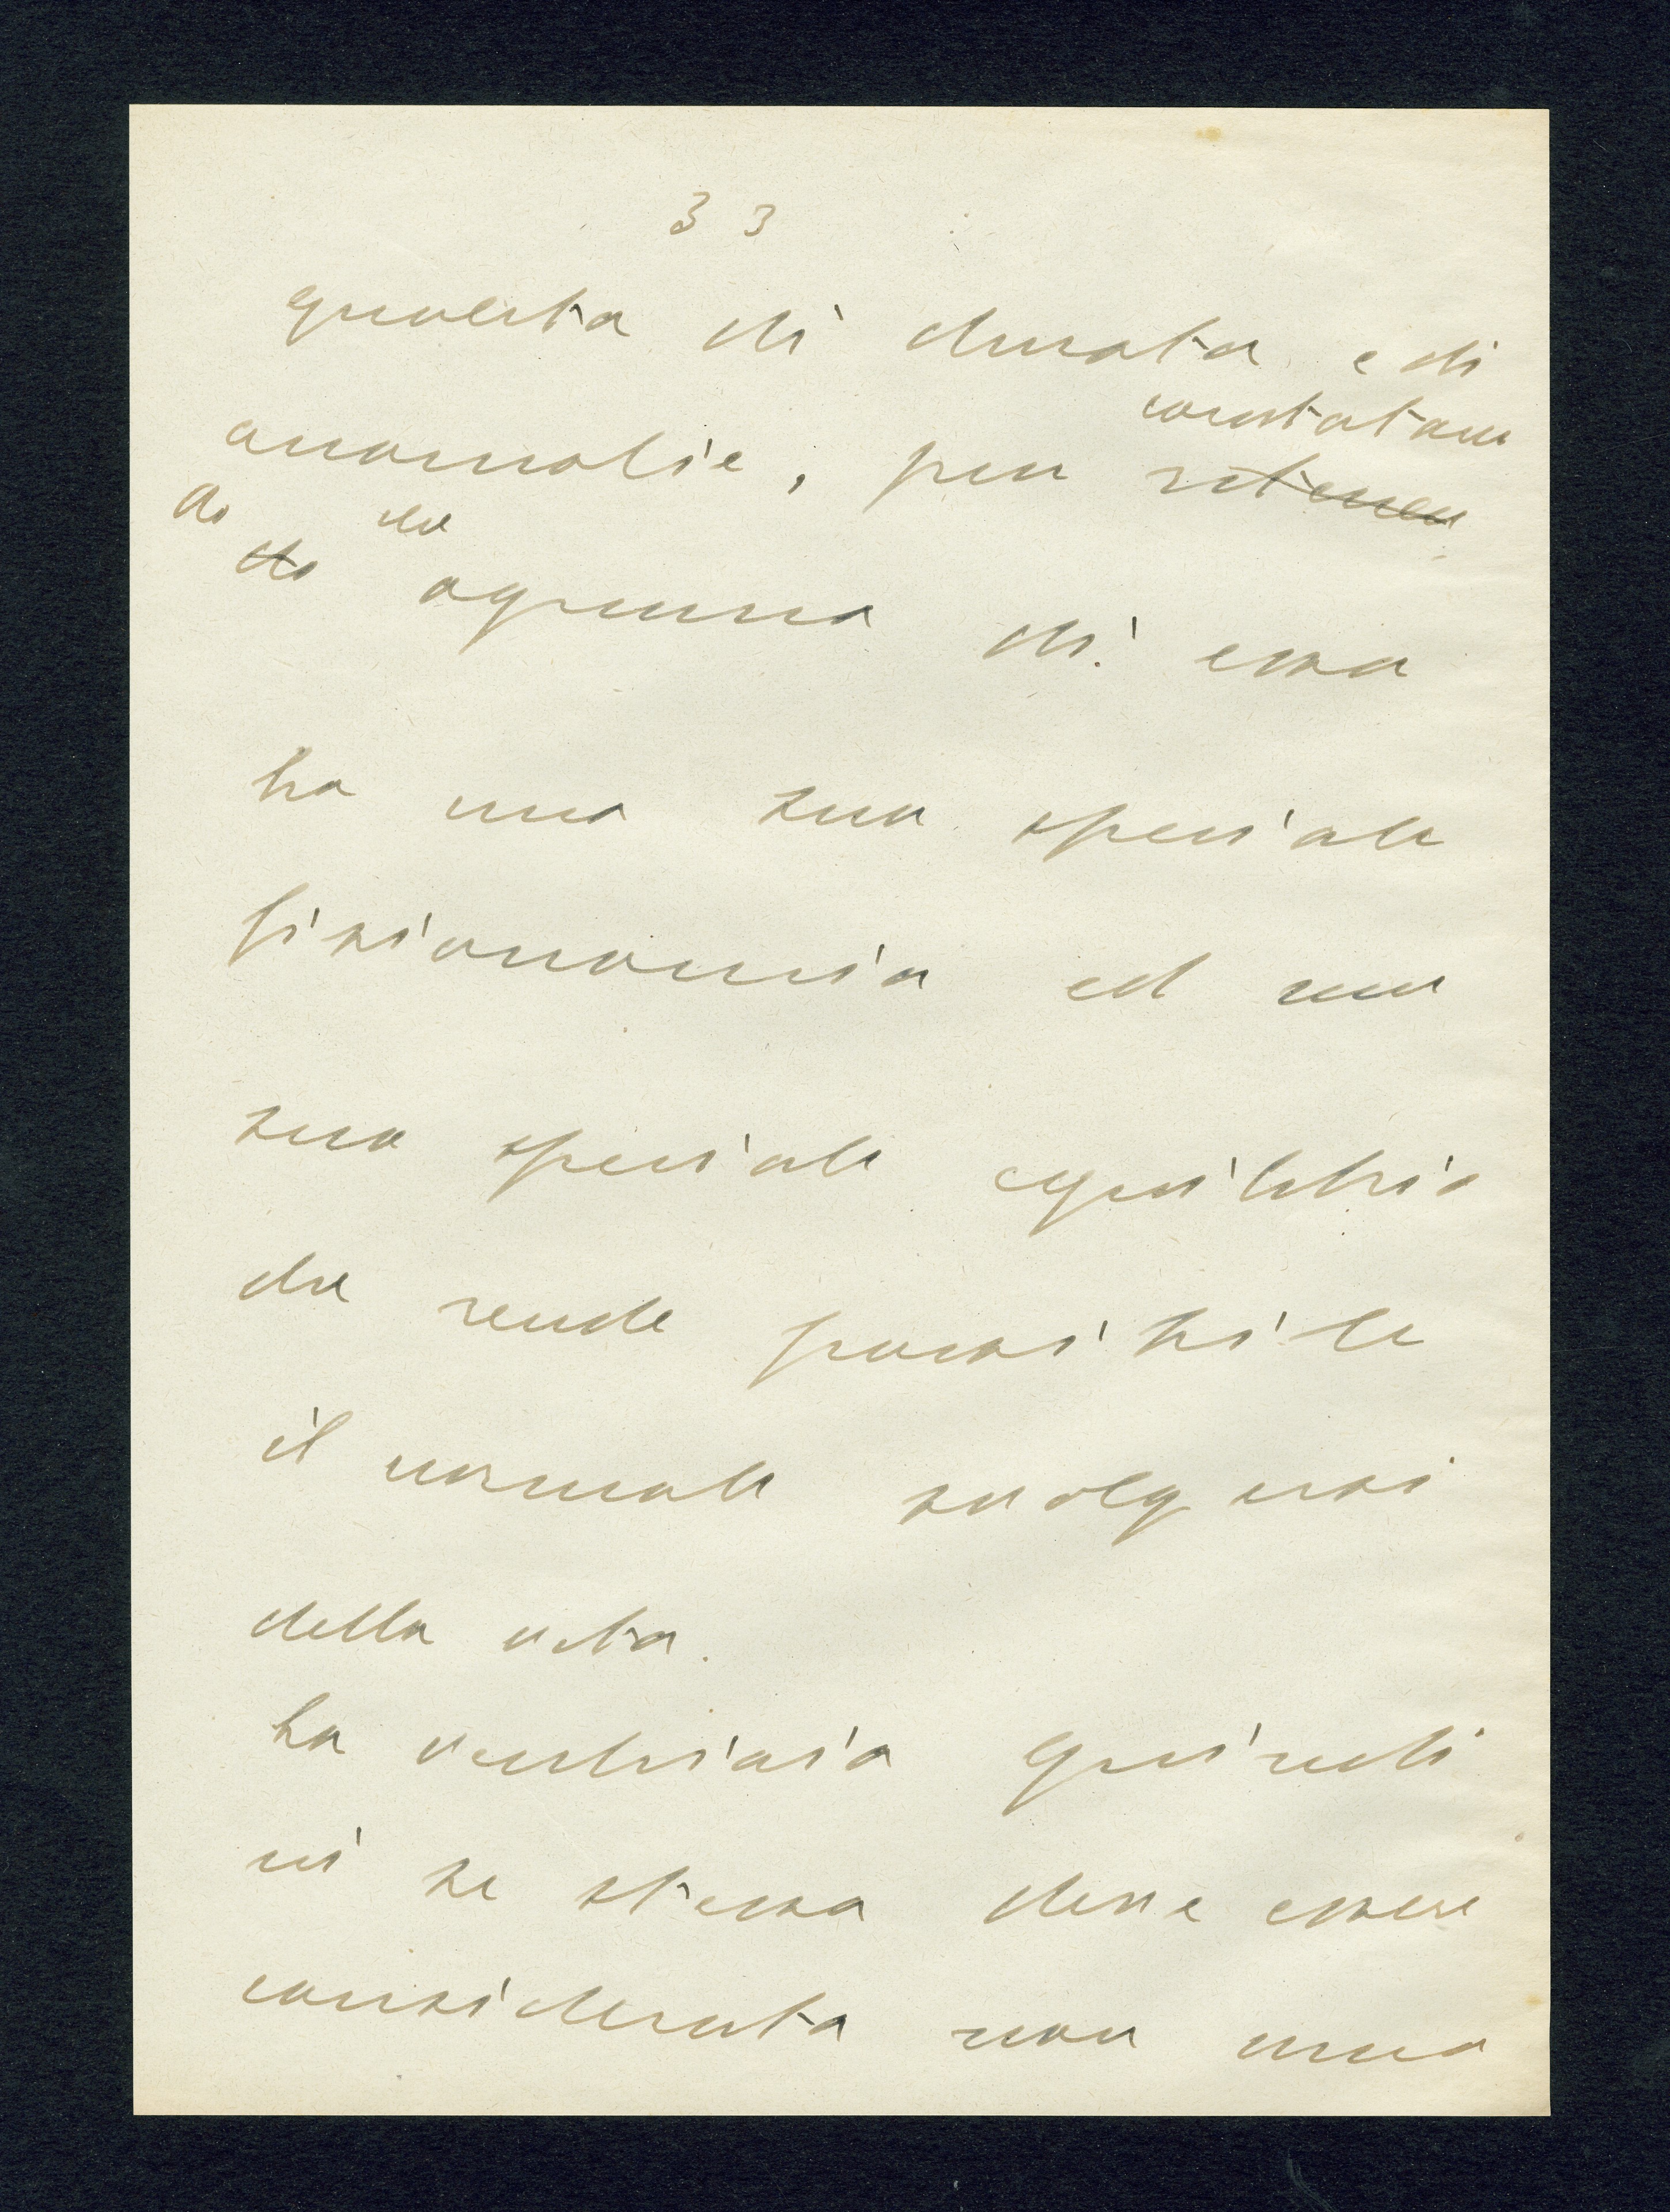 33
questa di durata e di
constatan
anomalie, pur
do
ognuna di essa
ha una sua speciale
fisionomia ed un
suo speciale equilibrio
che rende possibile
il normale svolgersi
della vita.
La vecchiaia quindi
in se stessa deve essere
considerata non una